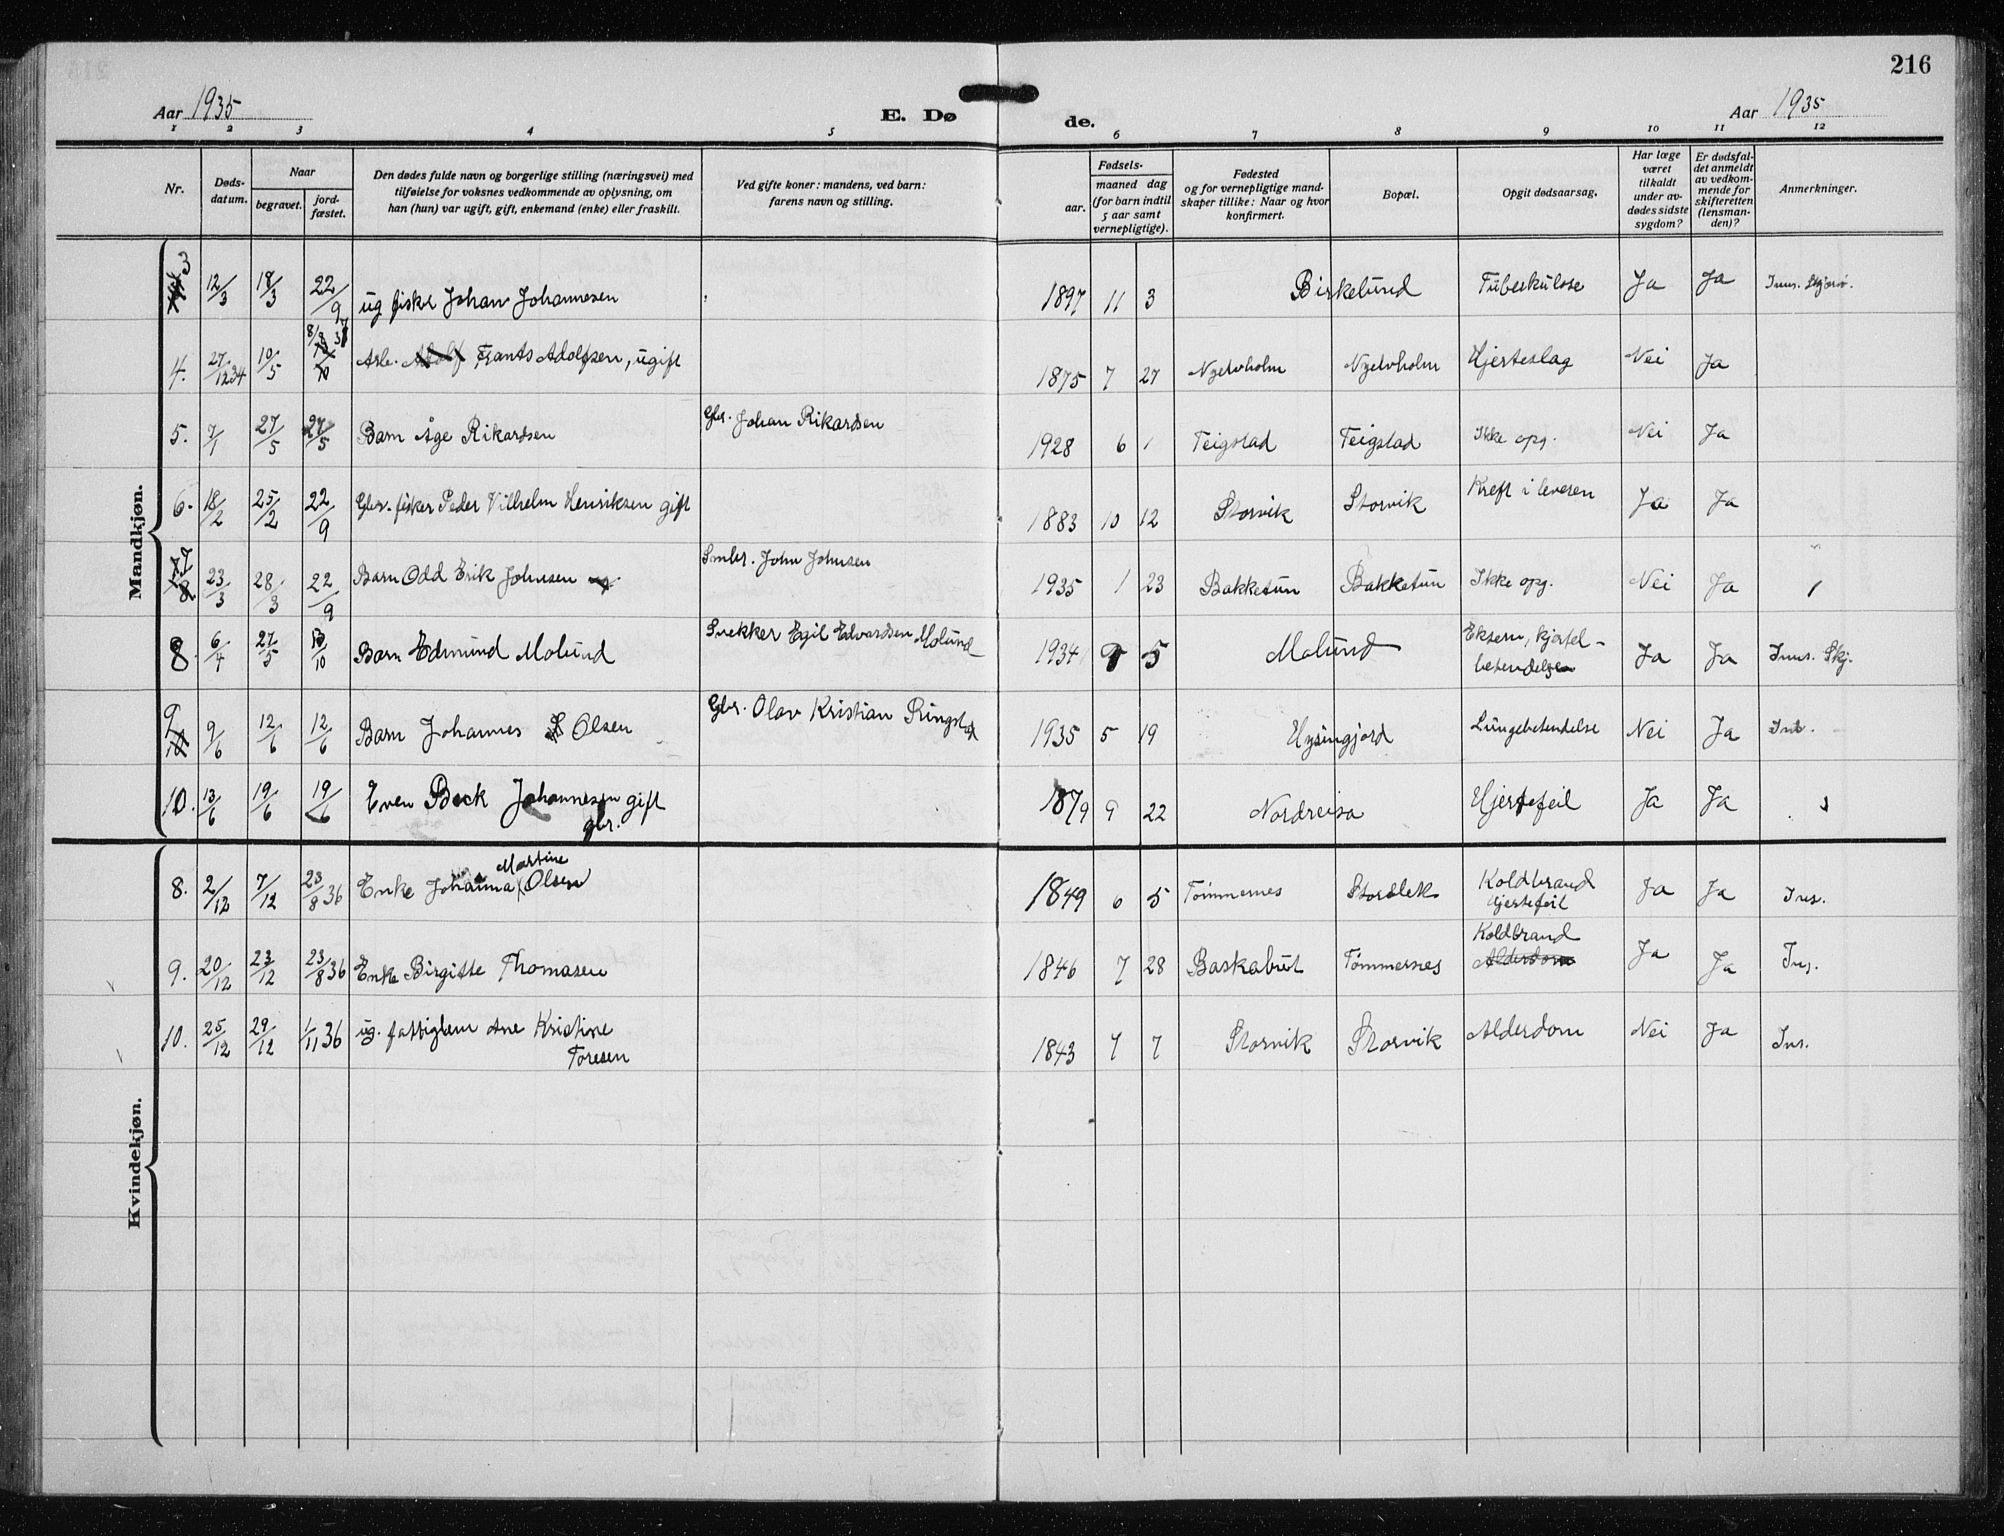 216
Aar 1935
E. Døde.
Aar 1935
1 2 3 4 5 6 7 8 9 10 11 12
Nr.
Døds-
datum.
Naar
begravet.
jord-
fæstet.
Den dødes fulde navn og borgerlige stilling (næringsvei) med
tilføielse for voksnes vedkommende av oplysning, om
han (hun) var ugift, gift, enkemand (enke) eller fraskilt.
Ved gifte koner: mandens, ved barn:
farens navn og stilling.
Fødsels-
aar.
maaned dag
(for barn indtil
5 aar samt
vernepligtige).
Fødested
og for vernepligtige mand-
skaper tillike: Naar og hvor
konfirmert.
Bopæl.
Opgit dødsaarsag.
Har læge
været
tilkaldt
under av-
dødes sidste
sygdom?
Er dødsfal-
det anmeldt
av vedkom-
mende for
skifteretten
(lensman-
den)?
Anmerkninger.
Mandkjøn.
3 12/3 18/3 22/9 ug fisker Johan Johannesen 1897 11 3 Birkelund Tuberkulose Ja Ja
4. 27/12 34 10/5 Arb. Adolf Frants Adolfsen, ugift 1875 7 27 Nyelvholm Nyelvholm Hjerteslag Nei Ja
5. 7/1 27/5 27/5 Barn Åge Rikardsen Gbr. Johan Rikardsen 1928 6 1 Teigstad Teigstad Ikke opg. Nei Ja
6. 18/2 25/2 22/9 Gbr. fisker Peder Vilhelm Henriksen gift 1883 10 12 Storvik Storvik Kreft i leveren Ja Ja
7 23/3 28/3 22/9 Barn Odd Erik Johnsen Smbr. John Johnsen 1935 1 23 Bakketun Bakketun Ikke opg. Nei Ja
8. 6/4 27/5 13/10 Barn Edmund Molund Snekker Egil Edvardsen Molund 1934 9 5 Molund Eksem, kjertel-
betendelse Ja Ja Inns. Skj.
9 9/6 12/6 12/6 Barn Johannes Olsen Gbr. Olav Kristian Ringstad 1935 5 19 Hysingjord Lungebetendelse Nei Ja
10. 13/6 19/6 19/6 Even Beck Johannesen gift
gbr. 1879 9 22 Nordreisa Hjertefeil Ja Ja
Kvindekjøn.
8. 2/12 7/12 23/8 36 Enke Johanna Martine Olsen 1849 6 5 Tømmernes Storslett Koldbrand
Hjertefeil Ja Ja Ins.
9. 20/12 23/12 23/8 36 Enke Birgitte Thomasen 1846 7 28 Baskabut Tømmernes Koldbrand
Alderdom Ja Ja Ins.
10. 25/12 29/12 1/11 36 ug. fattiglem Ane Kristine
Toresen 1843 7 7 Storvik Storvik Alderdom Nei Ja Ins.